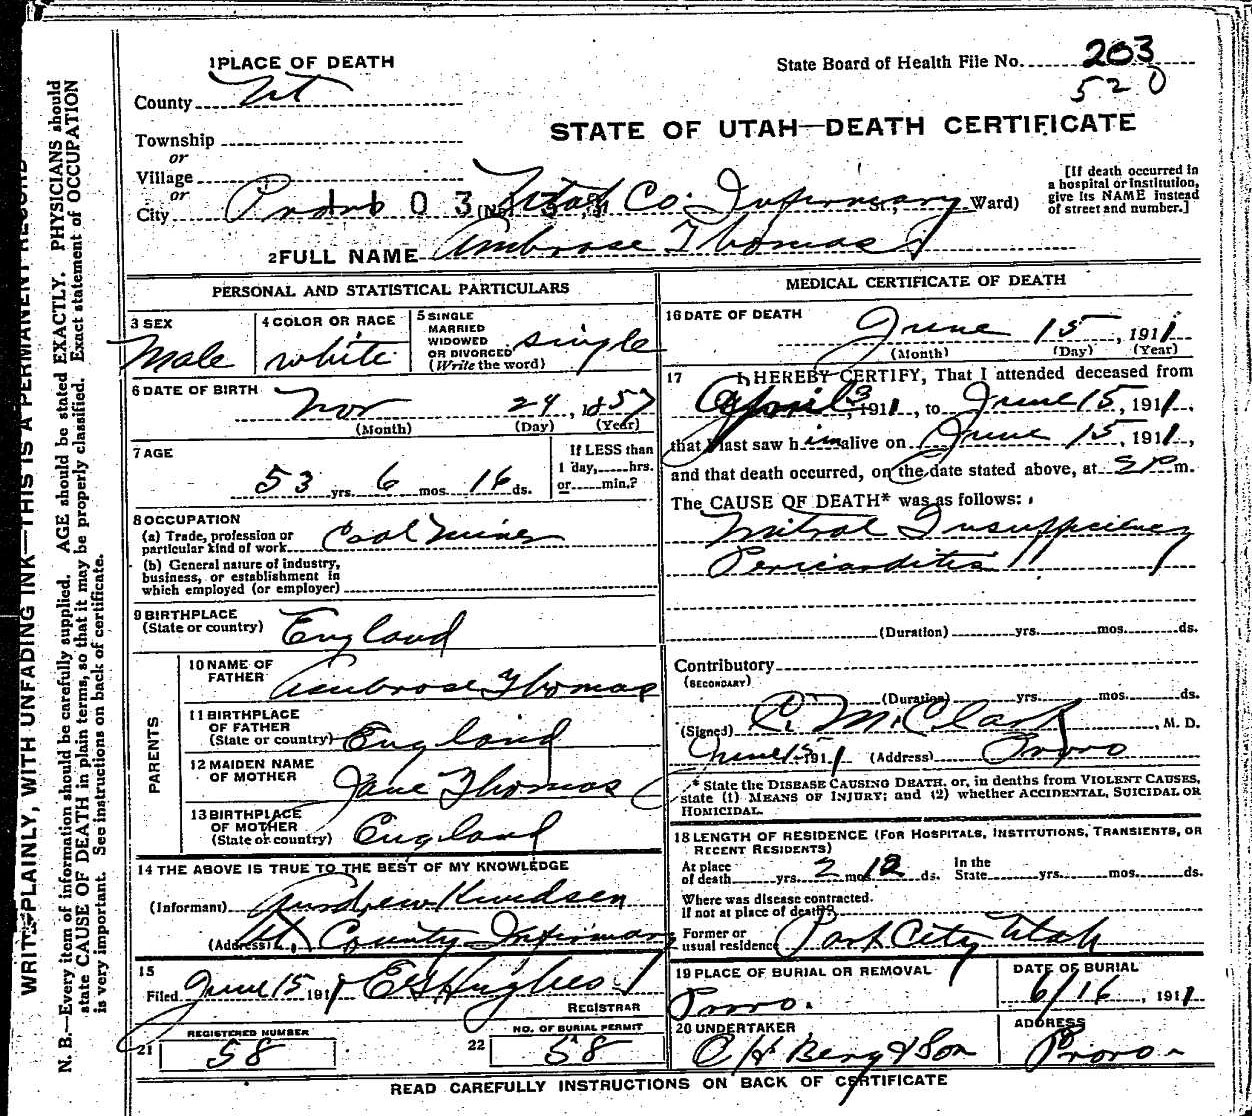 1 PLACE OF DEATH
State Board of Health File No. 203
520
County Ut
STATE OF UTAH—DEATH CERTIFICATE
Township
or
Village
or
City Provo 0 3 (No. Utah Co Infirmary St., Ward)
[If death occurred in
a hospital or institution,
give its NAME instead
of street and number.]
2 FULL NAME Ambrose Thomas Jr
PERSONAL AND STATISTICAL PARTICULARS
3 SEX
Male
4 COLOR OR RACE
white
5 SINGLE
MARRIED
WIDOWED
OR DIVORCED
(Write the word)
single
6 DATE OF BIRTH
Nov 24, 1857
(Month) (Day) (Year)
7 AGE
53 yrs. 6 mos. 16 ds.
If LESS than
1 day, hrs.
or min.?
8 OCCUPATION
(a) Trade, profession or
particular kind of work Coal Miner
(b) General nature of industry,
business, or establishment in
which employed (or employer)
9 BIRTHPLACE
(State or country) England
PARENTS
10 NAME OF
FATHER Ambrose Thomas
11 BIRTHPLACE
OF FATHER
(State or country) England
12 MAIDEN NAME
OF MOTHER Jane Thomas
13 BIRTHPLACE
OF MOTHER
(State or country) England
14 THE ABOVE IS TRUE TO THE BEST OF MY KNOWLEDGE
(Informant) Andrew Knudsen
(Address) Ut County Infirmary
15
Filed June 15 1911 E S Hughes
REGISTRAR
REGISTERED NUMBER
21 58
NO. OF BURIAL PERMIT
22 58
MEDICAL CERTIFICATE OF DEATH
16 DATE OF DEATH
June 15, 1911
(Month) (Day) (Year)
17 I HEREBY CERTIFY, That I attended deceased from
April 3, 1911, to June 15, 1911,
that I last saw him alive on June 15, 1911,
and that death occurred, on the date stated above, at 2 P m.
The CAUSE OF DEATH* was as follows:
Mitral Insufficiency
Pericarditis
(Duration) yrs. mos. ds.
Contributory
(SECONDARY)
(Duration) yrs. mos. ds.
(Signed) C. M. Clark, M. D.
June 15 1911 (Address) Provo
* State the DISEASE CAUSING DEATH, or, in deaths from VIOLENT CAUSES,
state (1) MEANS OF INJURY; and (2) whether ACCIDENTAL, SUICIDAL OR
HOMICIDAL.
18 LENGTH OF RESIDENCE (FOR HOSPITALS, INSTITUTIONS, TRANSIENTS, OR
RECENT RESIDENTS)
At place
of death yrs. 2 mos. 12 ds.
In the
State yrs. mos. ds.
Where was disease contracted.
if not at place of death?
Former or
usual residence Park City Utah
19 PLACE OF BURIAL OR REMOVAL
Provo.
DATE OF BURIAL
6/16, 1911
20 UNDERTAKER
O H Berg & Son
ADDRESS
Provo
READ CAREFULLY INSTRUCTIONS ON BACK OF CERTIFICATE
WRITE PLAINLY, WITH UNFADING INK—THIS IS A PERMANENT RECORD
N. B.—Every item of information should be carefully supplied. AGE should be stated EXACTLY. PHYSICIANS should
state CAUSE OF DEATH in plain terms, so that it may be properly classified. Exact statement of OCCUPATION
is very important. See instructions on back of certificate.